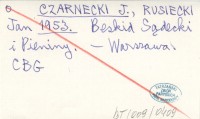 CZARNECKI J., RUSIECKI
Jan 1953. Beskid Sądecki
i Pieniny. – Warszawa
CBG